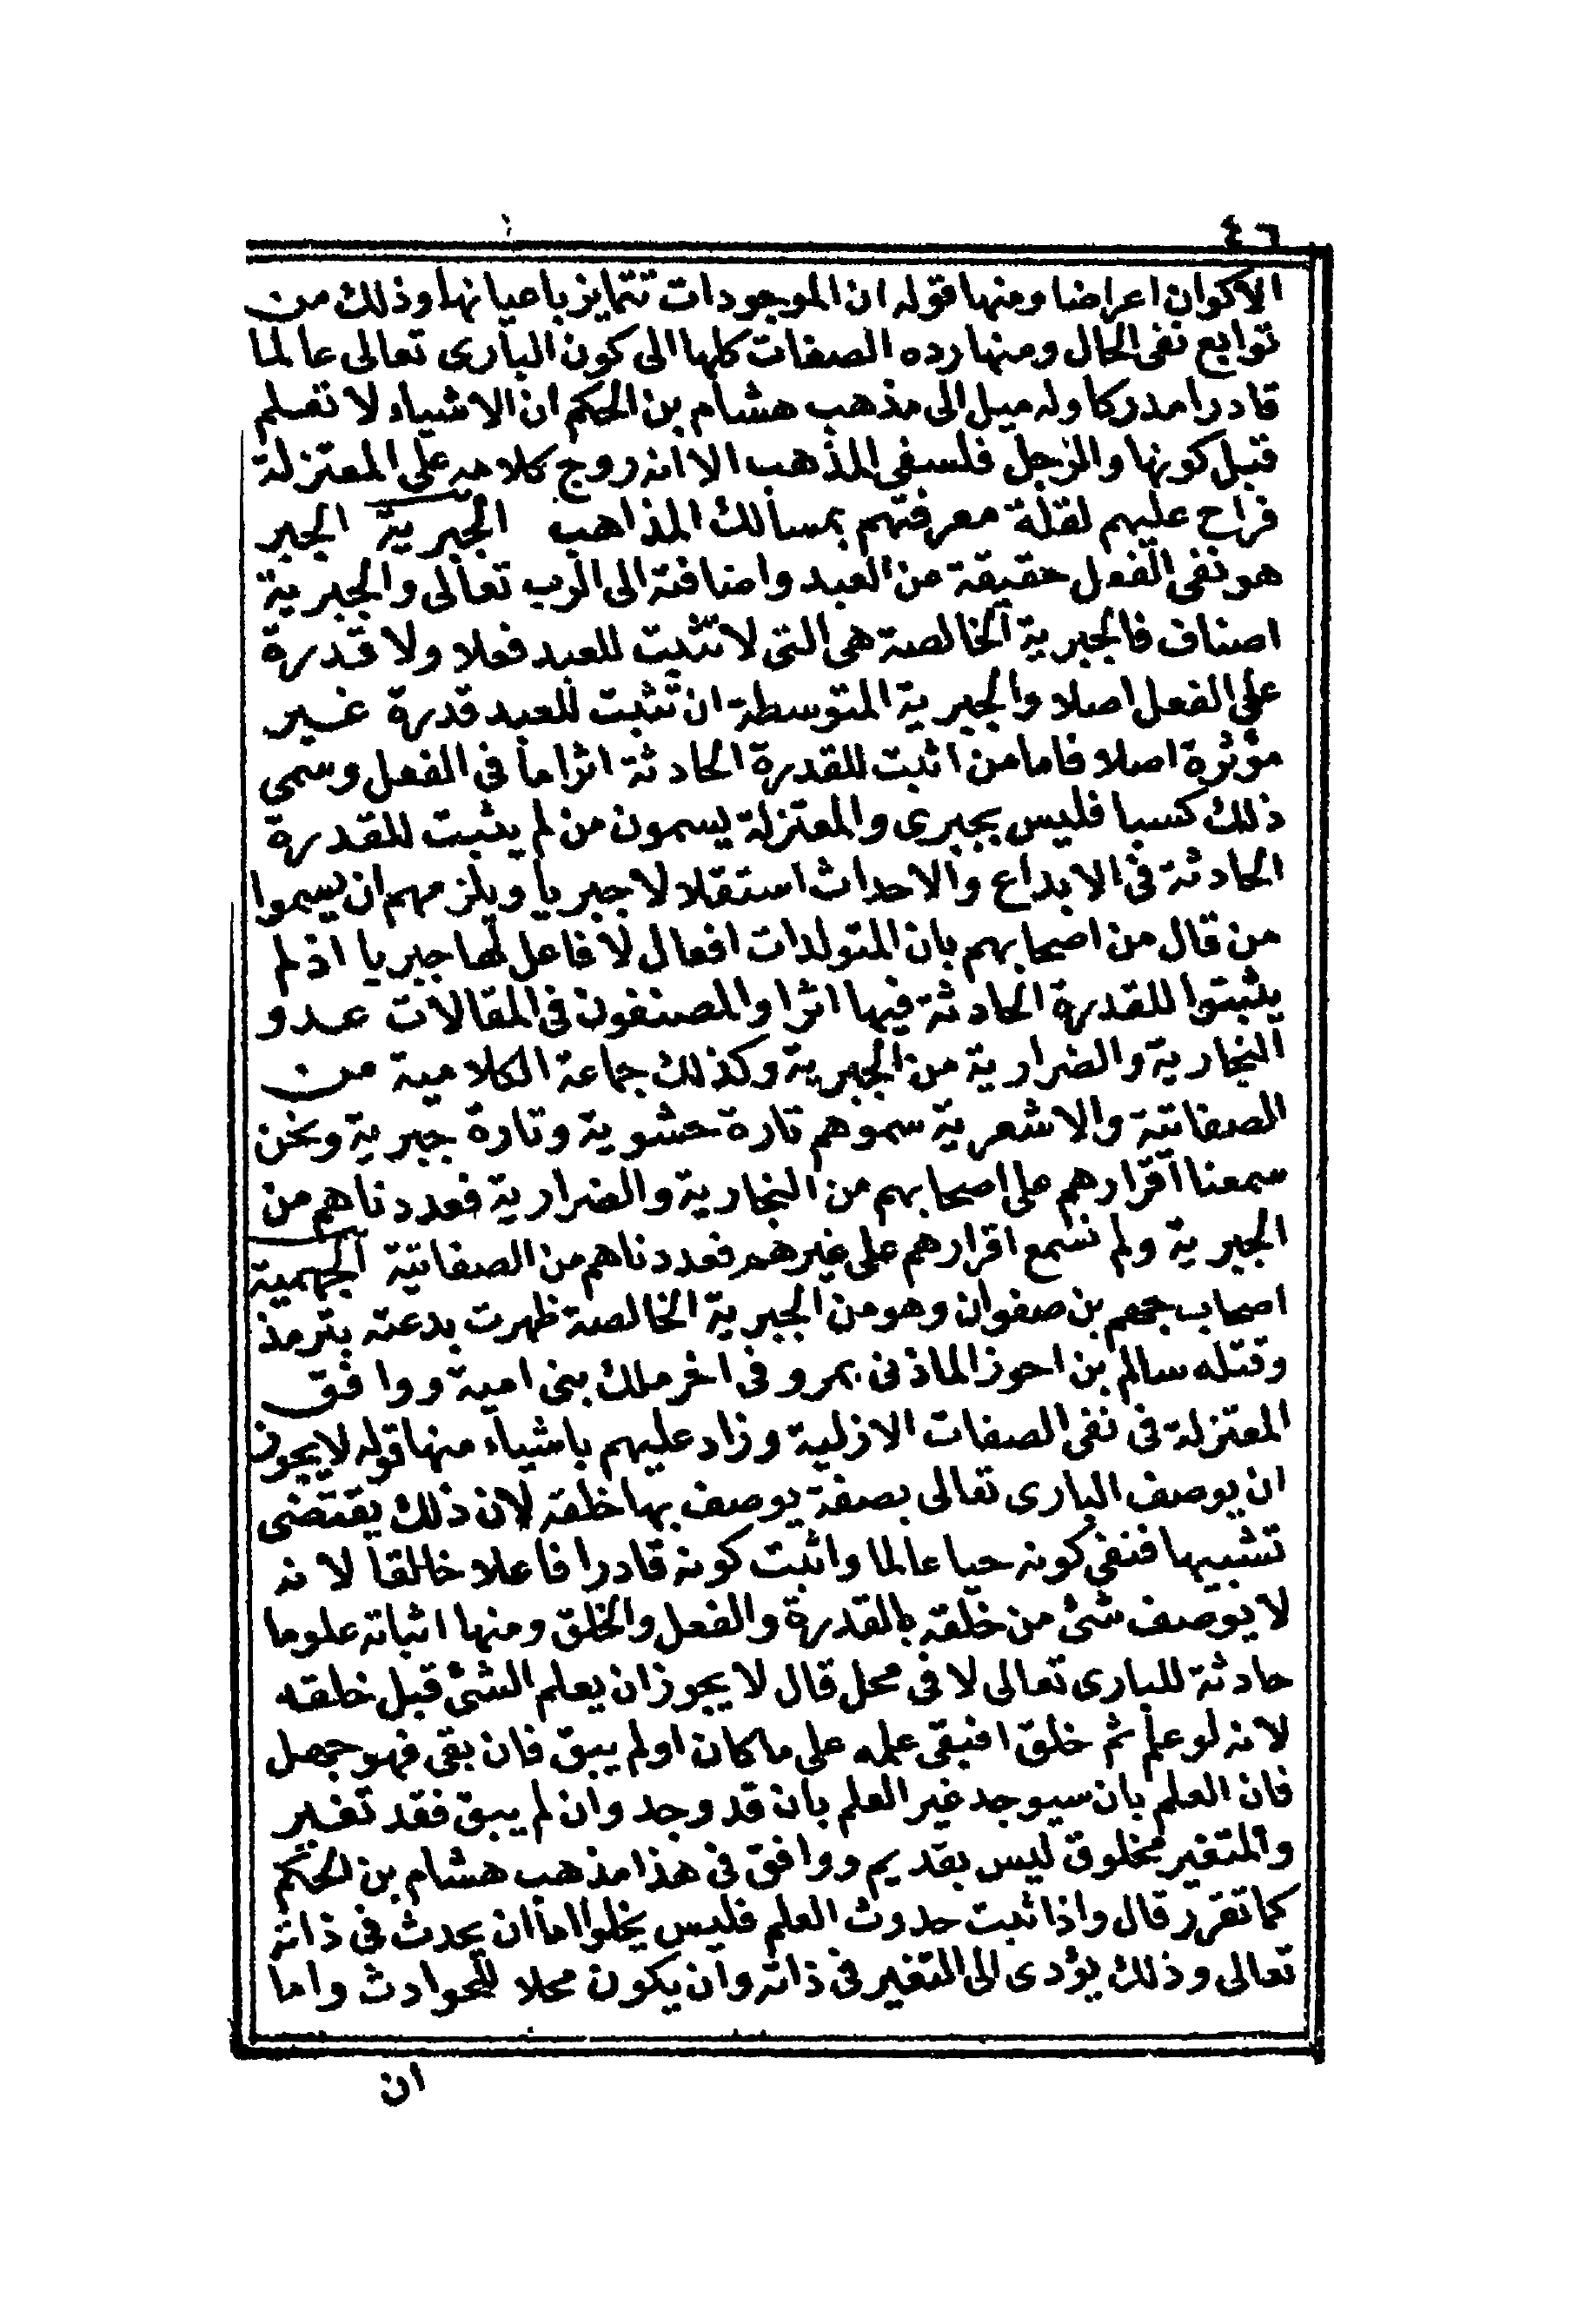 ٤٦
الاكوان اعراضا ومنها قوله ان الموجودات تتمايز باعيانها وذلك من
توابع نفى الحال ومنها رده الصفات كلها الى كون البارى تعالى عالما
قادرا مدركا وله ميل الى مذهب هشام بن الحكم ان الاشياء لا تعلم
قبل كونها والرجل فلسفى المذهب الا انه روج كلامه على المعتزلة
فراح عليهم لقلة معرفتهم بمسالك المذاهب الجبرية الجبر
هو نفى الفعل حقيقة من العبد واضافته الى الرب تعالى والجبرية
اصناف فالجبرية الخالصة هى التى لا تثبت للعبد فعلا ولا قدرة
على الفعل اصلا والجبرية المتوسطة ان تثبت للعبد قدرة غير
مؤثرة اصلا فاما من اثبت للقدرة الحادثة اثراما فى الفعل وسمى
ذلك كسبا فليس بجبرى والمعتزلة يسمون من لم يثبت للقدرة
الحادثة فى الابداع والاحداث استقلالا جبريا ويلزمهم ان يسموا
من قال من اصحابهم بان المتولدات افعال لا فاعل لها جبريا اذ لم
يثبتوا للقدرة الحادثة فيها اثرا والمصنفون فى المقالات عدو
النجارية والضرارية من الجبرية وكذلك جماعة الكلامية من
الصفاتية والاشعرية سموهم تارة حشوية وتارة جبرية ونحن
سمعنا اقرارهم على اصحابهم من النجارية والضرارية فعددناهم من
الجبرية ولم نسمع اقرارهم على غيرهم فعددناهم من الصفاتية الجهمية
اصحاب جهم بن صفوان وهو من الجبرية الخالصة ظهرت بدعته بترمذ
وقتله سالم بن احوز الماذنى بمرو فى اخر ملك بنى امية ووافق
المعتزلة فى نفى الصفات الازلية وزاد عليهم باشياء منها قوله لا يجوز
ان يوصف البارى تعالى بصفة يوصف بها خلقه لان ذلك يقتضى
تشبيها فنفى كونه حيا عالما واثبت كونه قادرا فاعلا خالقا لا نه
لا يوصف شئ من خلقه بالقدرة والفعل والخلق ومنها اثباته علوما
حادثة للبارى تعالى لا فى محل قال لا يجوز ان يعلم الشئ قبل خلقه
لانه لو علم ثم خلق افبقى علمه على ما كان اولم يبق فان بقى فهو جهل
فان العلم بان سيوجد غير العلم بان قد وجد وان لم يبق فقد تغير
والمتغير مخلوق ليس بقديم ووافق فى هذا مذهب هشام بن الحكم
كما تقرر قال واذا ثبت حدوث العلم فليس يخلوا اما ان يحدث فى ذاته
تعالى وذلك يؤدى الى التغير فى ذاته وان يكون محلا للحوادث واما
ان